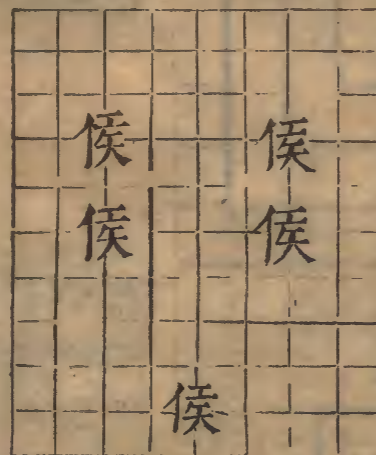 侯 侯
侯 侯
侯